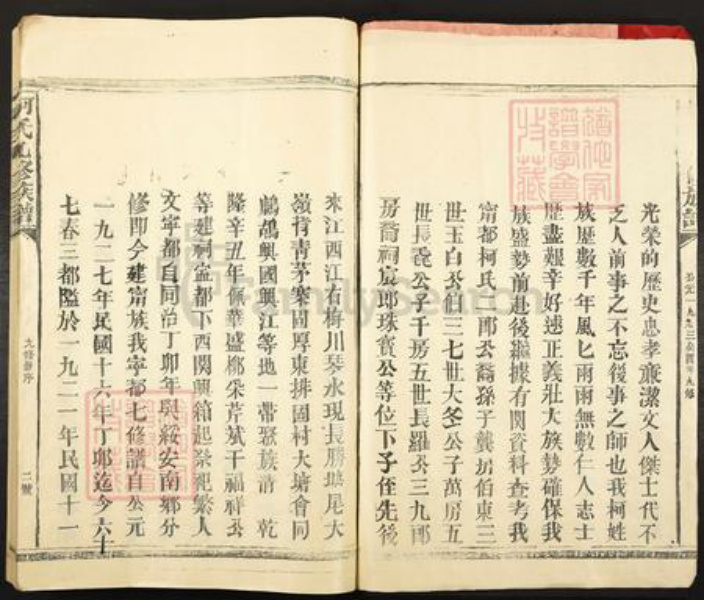 光榮的歷史忠孝廉潔文人傑士代不
乏人前事之不忘後事之師也我柯姓
族歷數千年風匕雨雨無數仁人志士
歷盡艱辛好遠正義壯大族勢確保我
族盛勢前赴後繼據有関資料查考我
甯都柯氏二郎公裔孫子龔坊伯東三
世玉白公伯三七世大冬公子萬房五
世長公子千房五世長羅公三九郎
房裔祠宸郎珠寶公等位下子侄先後
來江西江右梅川琴水現長勝塘尾大
嶺背青茅寨固厚東排固村大塘會同
鷓鴣興國興江等地一帶聚族清乾
隆辛丑年佩華盛郷朵芹斌干福祥公
等建祠寧都下西関興箱起祭祀繁人
文寧都自同治丁卯年與綏安南鄉分
修即今建甯族我寧都七修譜自公元
一九二七年民國十六年丁卯迄今六十
七春三都隘於一九二一年民國十一
柯氏九修族譜
九修譜序
二號
族譜
公元一九九三癸酉年九修
譜學會
收藏
FamilySearch